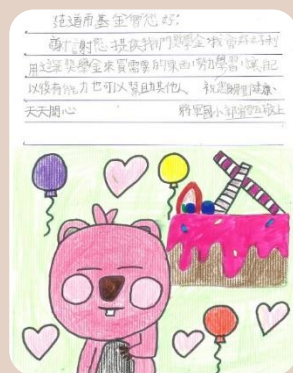 道南基金會您好:
謝謝您提供我們獎學金,我會好好利
用這筆獎學金來買需要的東西,努力學習,讓自己
以後有能力也可以幫助其他人。祝您身體健康、
天天開心
國小 敬上